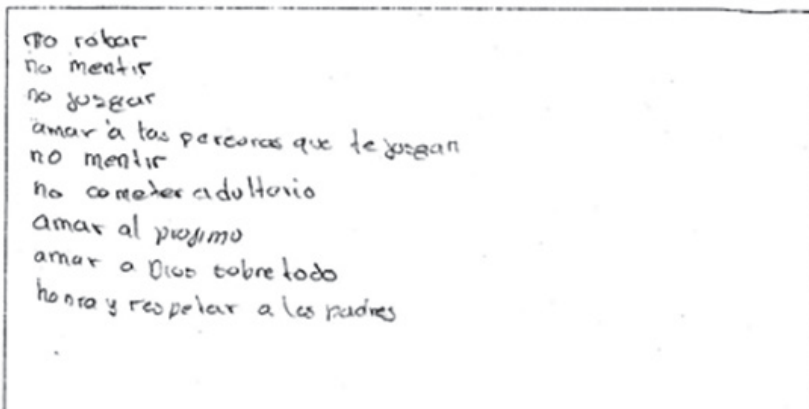 no robar
no mentir
no jusgar
amar a las personas que te jusgan
no mentir
no cometer adulterio
amar al projimo
amar a Dios sobre todo
honra y respetar a los padres